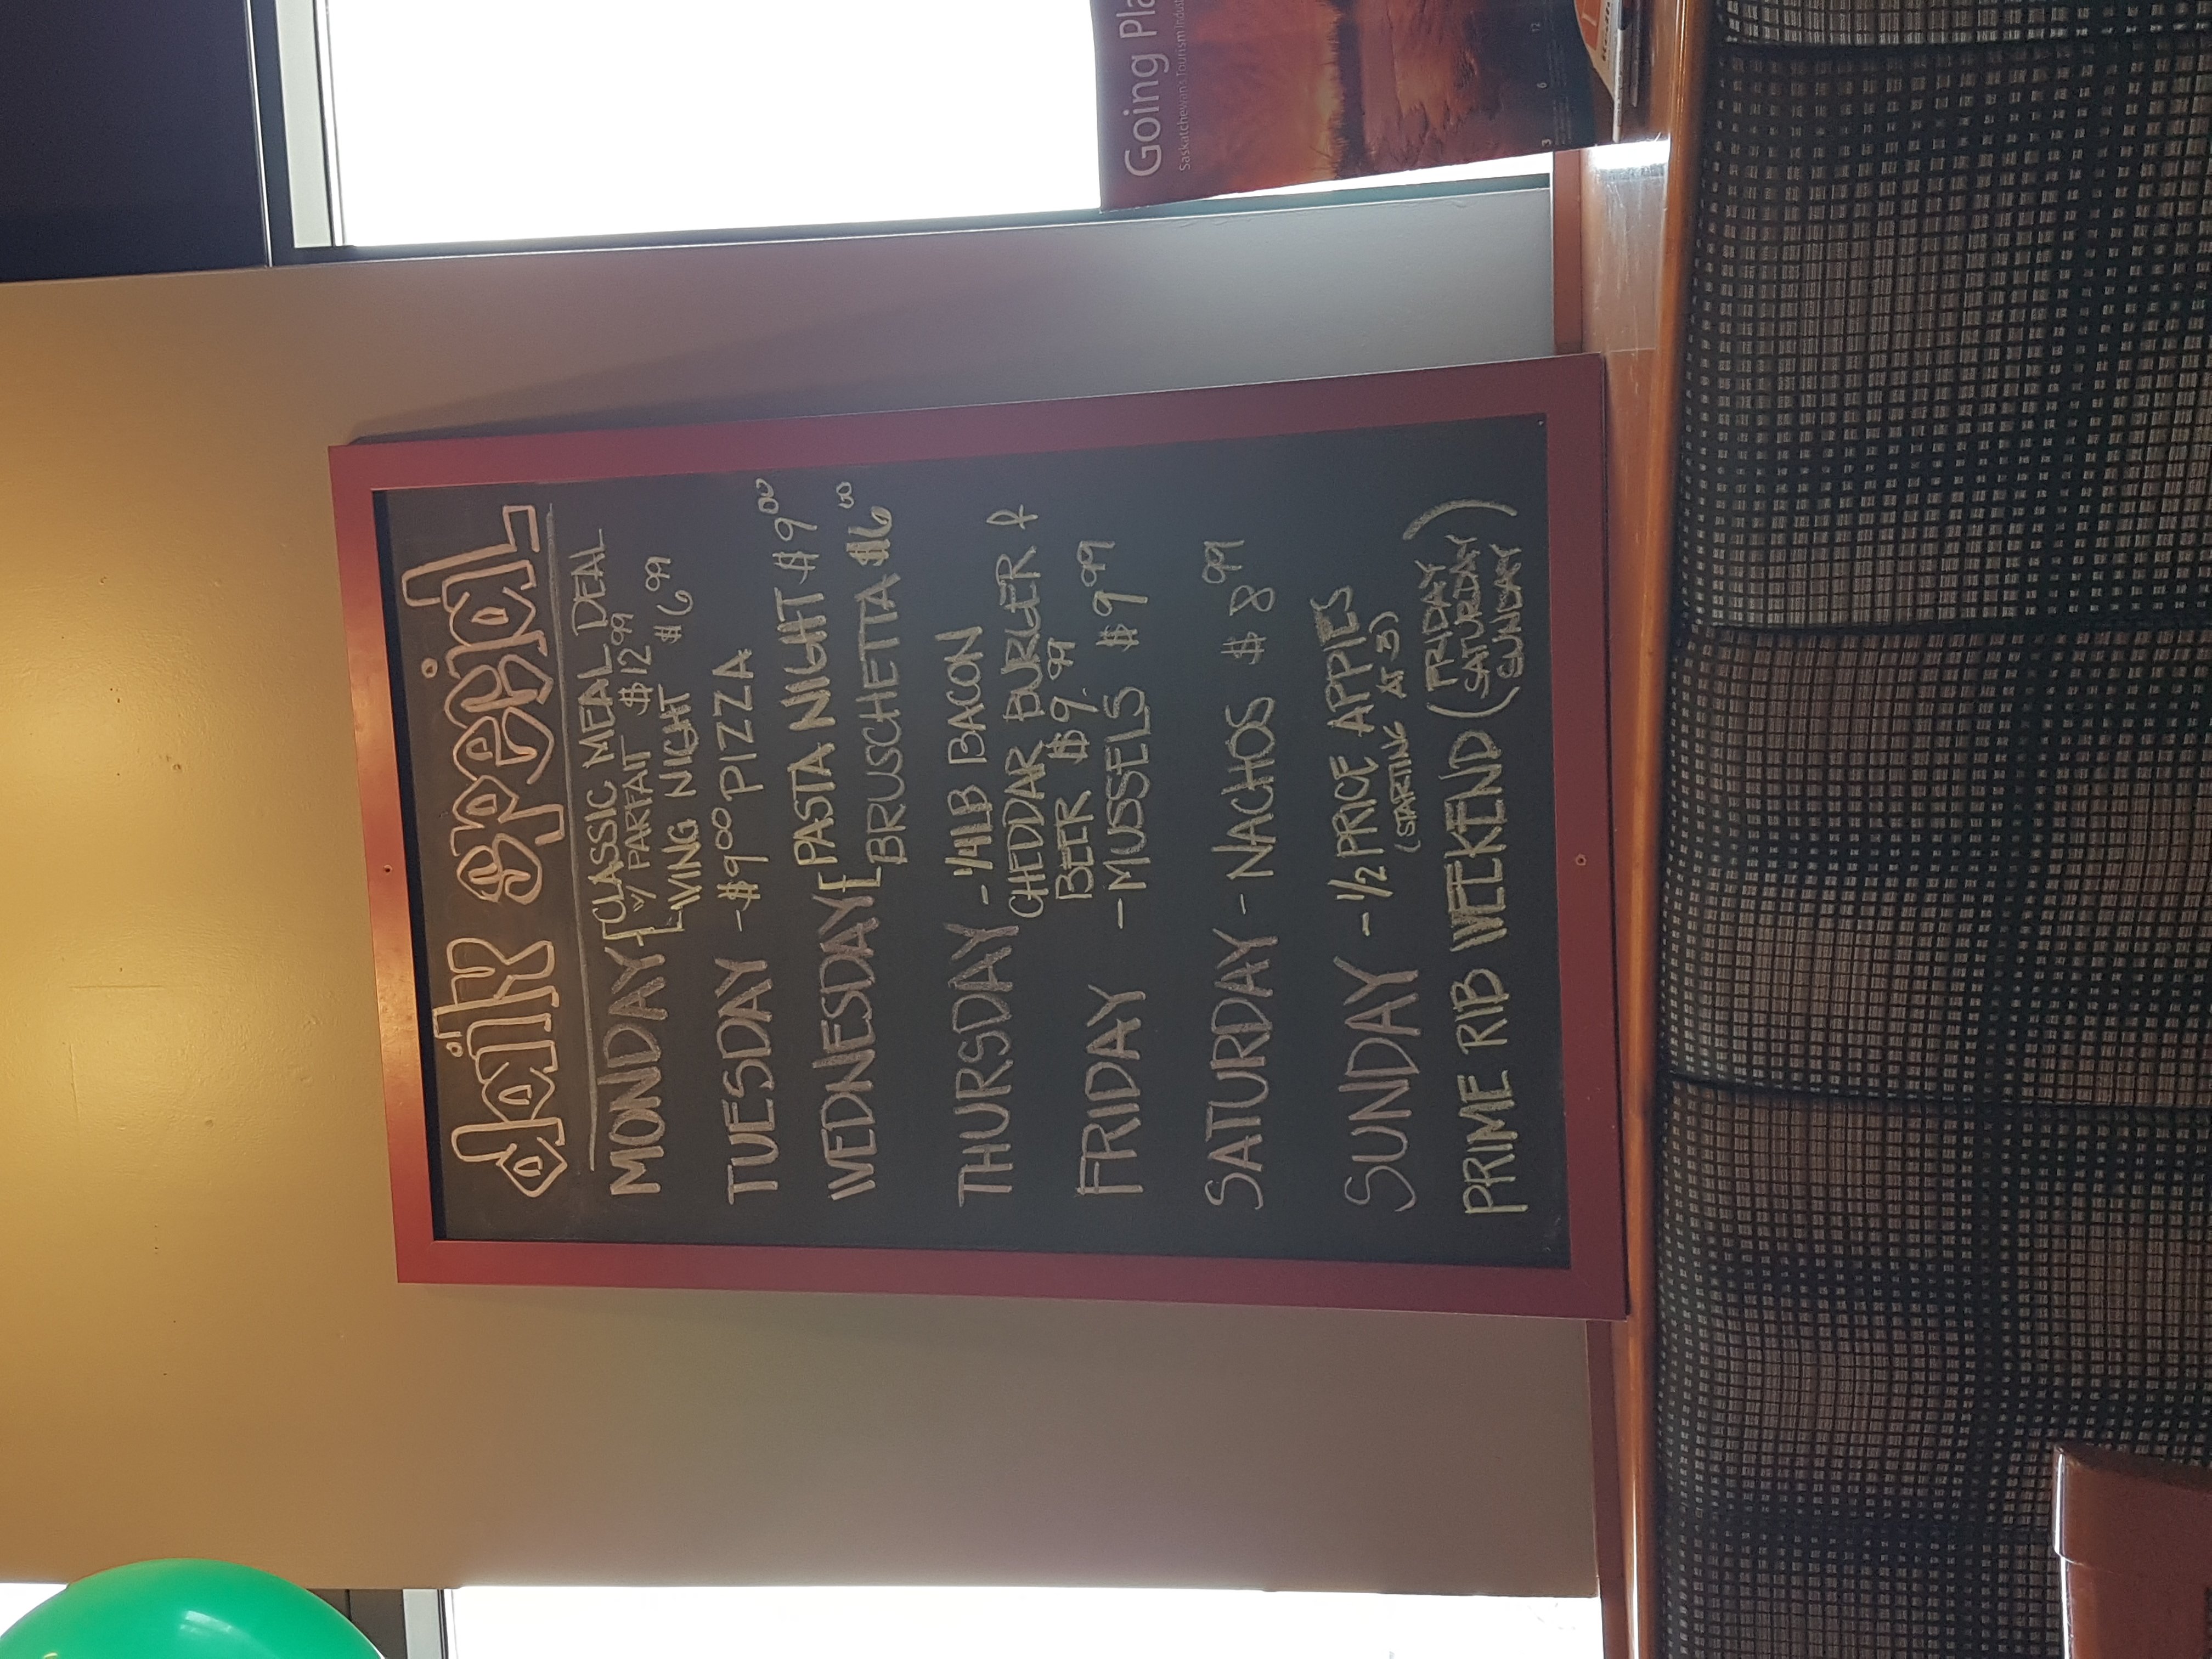 daily special
MONDAY
CLASSIC MEAL DEAL
w/ PARFAIT $12.99
WING NIGHT $6.99
TUESDAY - $9.00 PIZZA
WEDNESDAY
PASTA NIGHT $9.00
BRUSCHETTA $6.00
THURSDAY - 1/4LB BACON
CHEDDAR BURGER &
BEER $9.99
FRIDAY - MUSSELS $9.99
SATURDAY - NACHOS $8.99
SUNDAY - 1/2 PRICE APPIES
(STARTING AT 3)
PRIME RIB WEEKEND (FRIDAY
SATURDAY
SUNDAY)
Going Pla
Saskatchewan's Tourism Indus
3 6 12